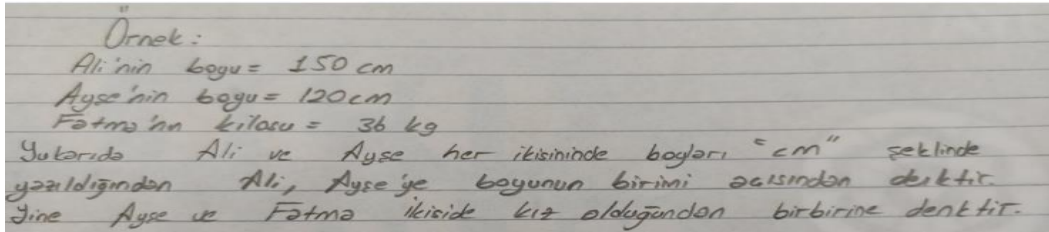 Örnek:
Ali'nin boyu = 150 cm
Ayse'nin boyu = 120cm
Fatma'nın kilosu = 36 kg
Yukarıda Ali ve Ayse her ikisininde boyları "cm" seklinde
yazıldığından Ali, Ayse'ye boyunun birimi acısından denktir.
Yine Ayse ve Fatma ikiside kız olduğundan birbirine denktir.